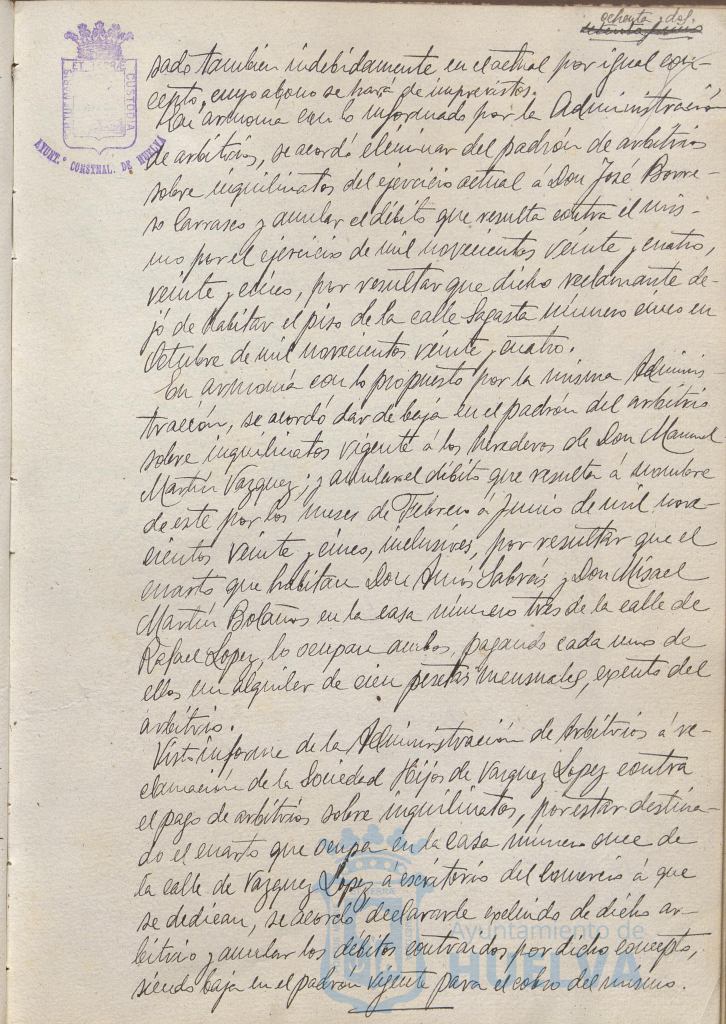 ochenta y dos.
setenta y uno
AYUNT.º CONSTNAL. DE HUELVA
CUSTODIA
sado también indebidamente en el actual por igual con-
cepto, cuyo abono se hará de imprevistos.
En armonía con lo informado por la Administración
de arbitrios, se acordó eliminar del padrón de arbitrios
sobre inquilinatos del ejercicio actual á Don José Borre-
ro Carrasco y anular el débito que resulta contra el mis-
mo por el ejercicio de mil novecientos veinte y cuatro,
veinte y cinco, por resultar que dicho reclamante de-
jó de habitar el piso de la calle Sagasta número cinco en
Octubre de mil novecientos veinte y cuatro.
En armonía con lo propuesto por la misma Adminis-
tración, se acordó dar de baja en el padrón del arbitrio
sobre inquilinatos vigente á los herederos de Don Manuel
Martín Vazquez; y anular el débito que resulta á nombre
de este por los meses de Febrero á Junio de mil nove-
cientos veinte y cinco, inclusives, por resultar que el
cuarto que habitan Don Amós Sabrás y Don Misael
Martín Bolaños en la casa número tres de la calle de
Rafael Lopez, lo ocupan ambos, pagando cada uno de
ellos un alquiler de cien pesetas mensuales, exento del
arbitrio.
Visto informe de la Administración de Arbitrios á re-
clamación de la Sociedad Hijos de Vazquez Lopez contra
el pago de arbitrios sobre inquilinatos, por estar destina-
do el cuarto que ocupa en la casa número once de
la calle de Vazquez Lopez á escritorio del comercio á que
se dedican, se acordó declararle excluido de dicho ar-
bitrio y anular los débitos contraidos por dicho concepto,
siendo baja en el padrón vigente para el cobro del mismo.
Ayuntamiento de
HUELVA